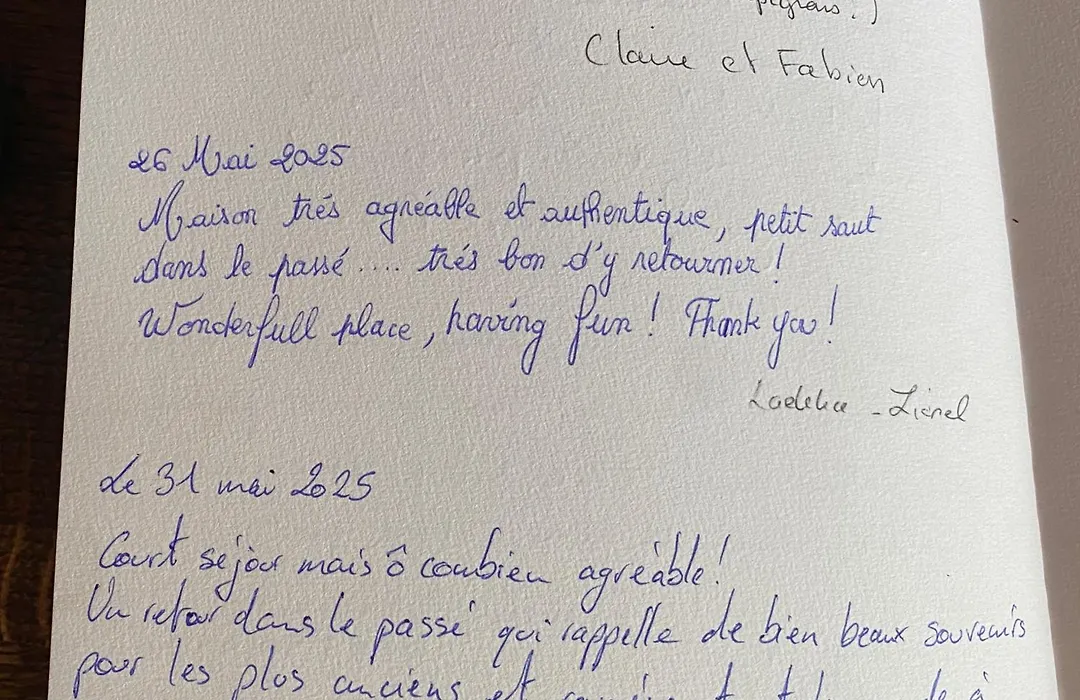 Claire et Fabien
26 Mai 2025
Maison trés agréable et authentique, petit saut
dans le passé .... trés bon d'y retourner !
Wonderfull place, having fun ! Thank you !
Laetitia - Lionel
Le 31 mai 2025
Court séjour mais ô combien agréable !
Un retour dans le passé qui rappelle de bien beaux souvenirs
pour les plus anciens et